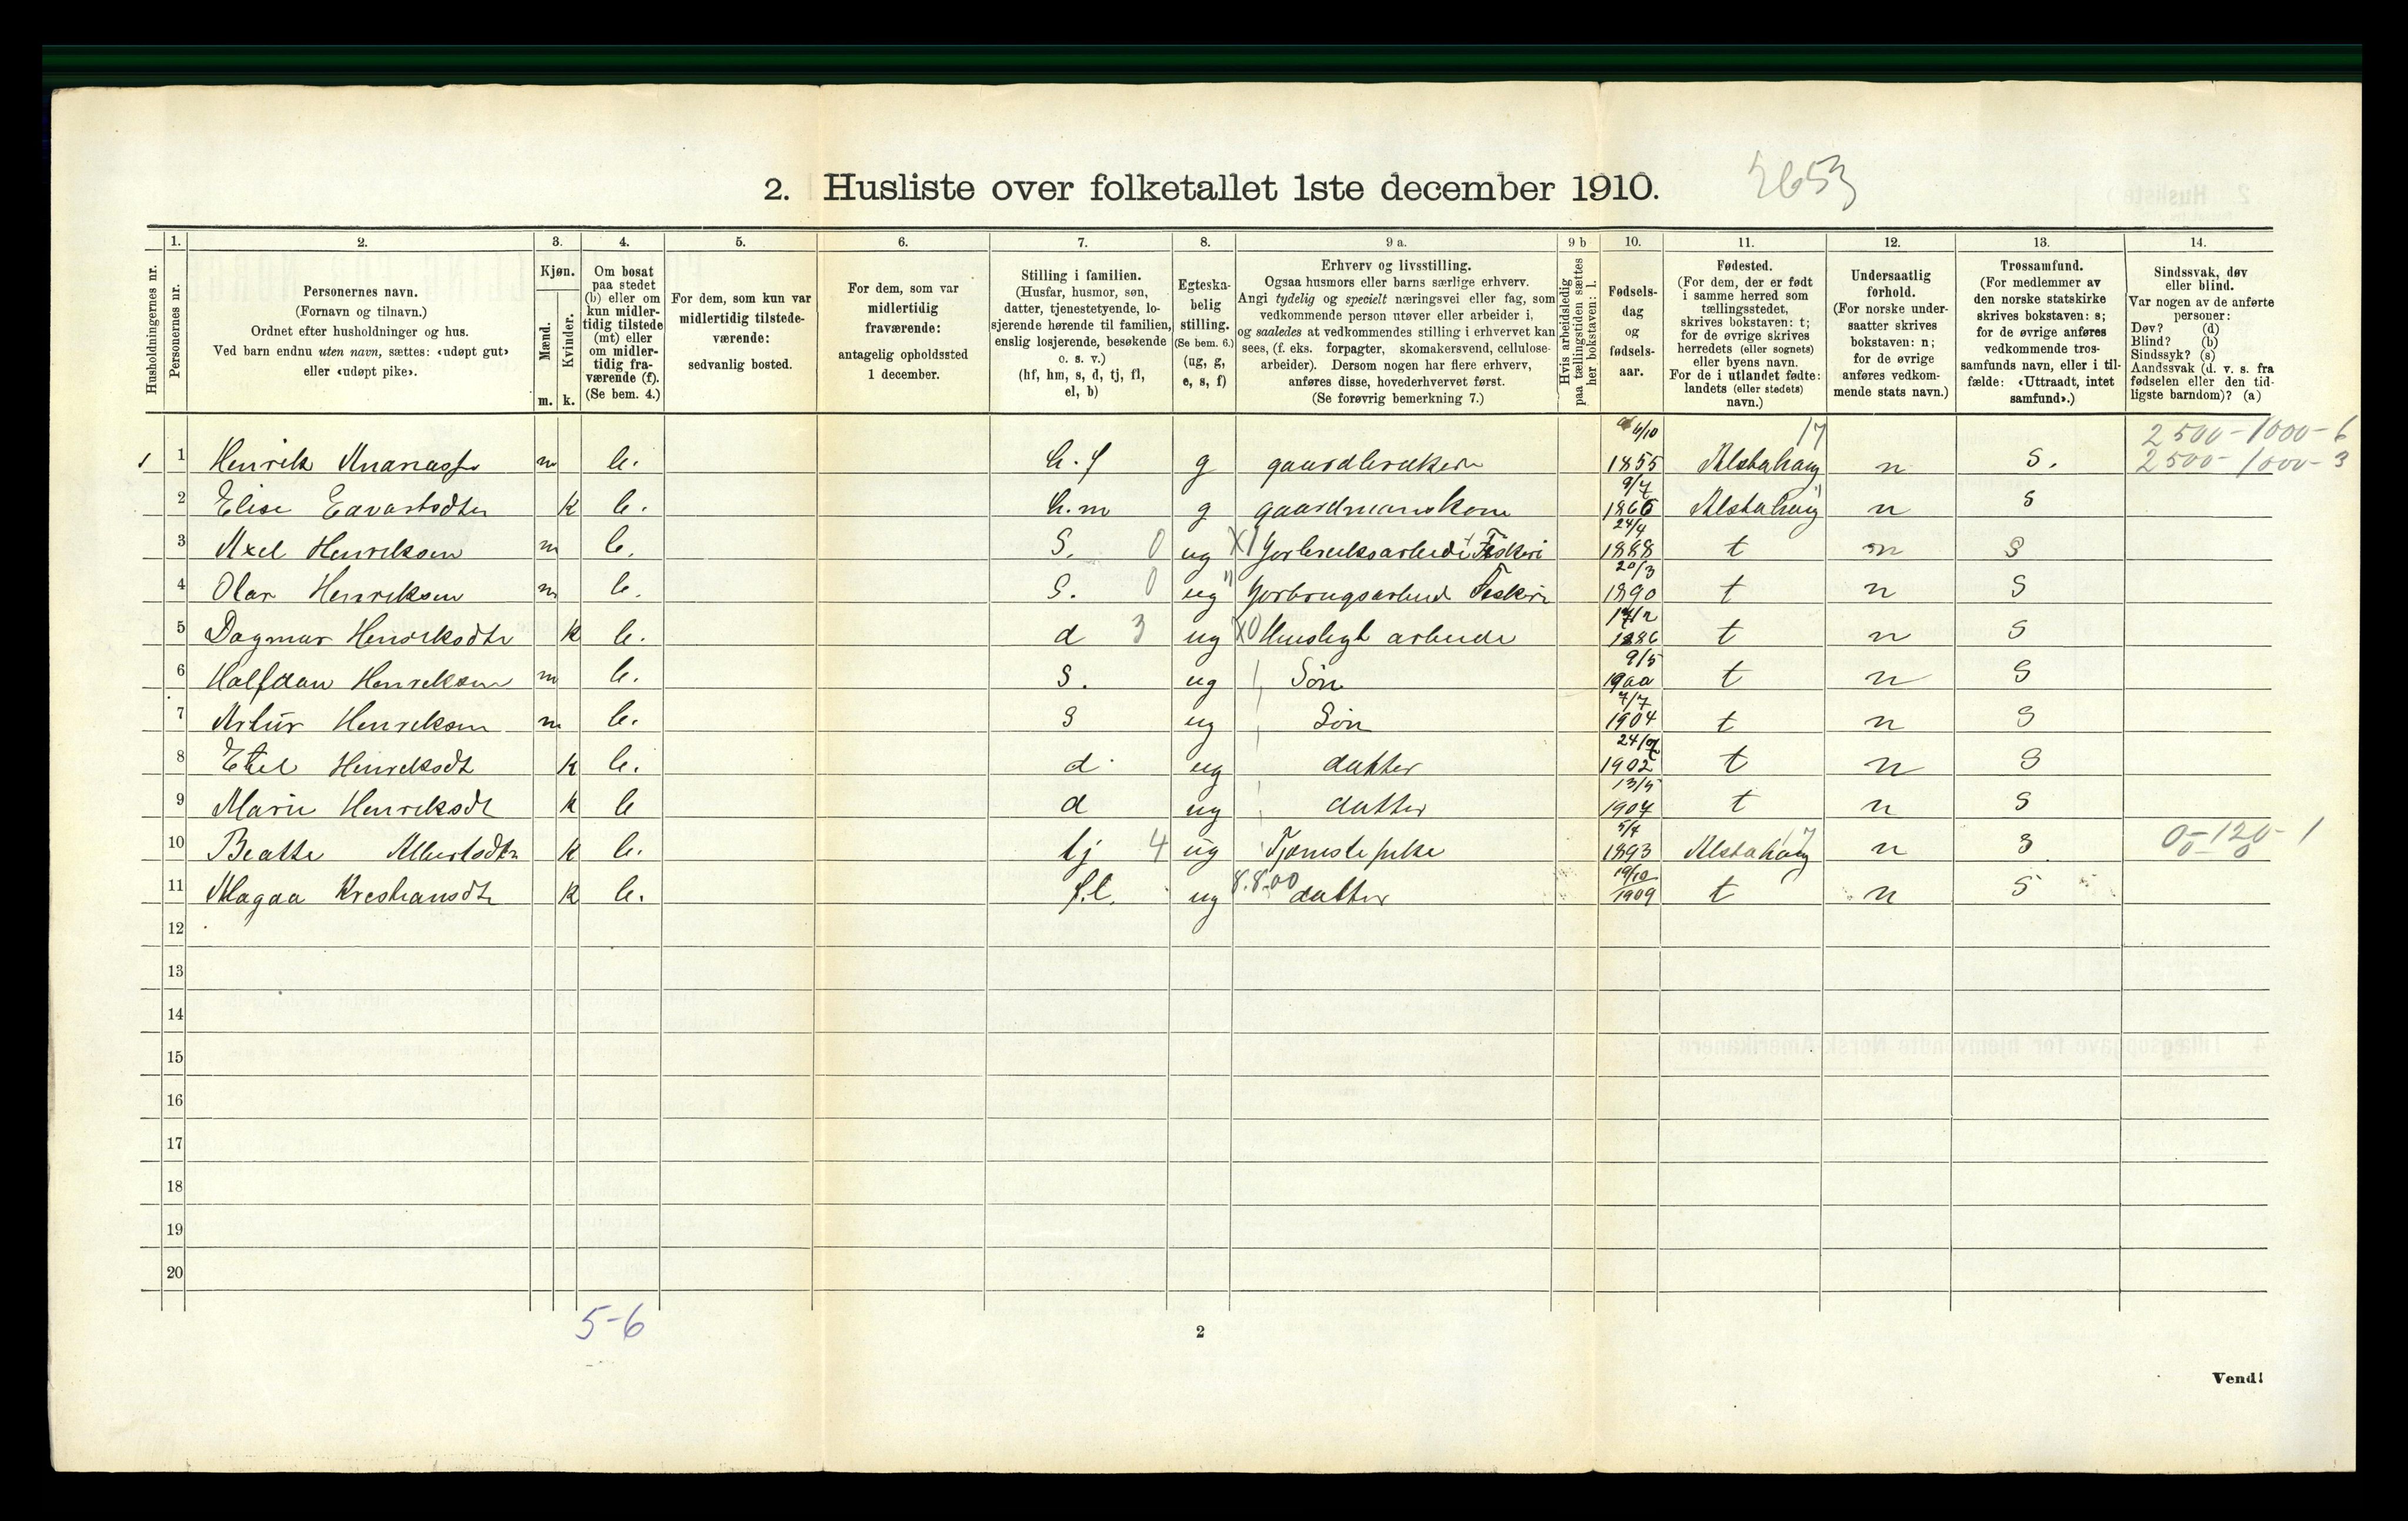 2. Husliste over folketallet 1ste december 1910. 2653
Husholdningernes nr.
1. Personernes nr.
2. Personernes navn. (Fornavn og tilnavn.) Ordnet efter husholdninger og hus. Ved barn endnu uten navn, sættes: «udøpt gut» eller «udøpt pike».
3. Kjøn. Mænd. m. Kvinder. k.
4. Om bosat paa stedet (b) eller om kun midlertidig tilstede (mt) eller om midlertidig fraværende (f). (Se bem. 4.)
5. For dem, som kun var midlertidig tilstedeværende: sedvanlig bosted.
6. For dem, som var midlertidig fraværende: antagelig opholdssted 1 december.
7. Stilling i familien. (Husfar, husmor, søn, datter, tjenestetyende, losjerende hørende til familien, enslig losjerende, besøkende o. s. v.) (hf, hm, s, d, tj, fl, el, b)
8. Egteskabelig stilling. (Se bem. 6.) (ug, g, e, s, f)
9 a. Erhverv og livsstilling. Ogsaa husmors eller barns særlige erhverv. Angi tydelig og specielt næringsvei eller fag, som vedkommende person utøver eller arbeider i, og saaledes at vedkommendes stilling i erhvervet kan sees, (f. eks. forpagter, skomakersvend, cellulosearbeider). Dersom nogen har flere erhverv, anføres disse, hovederhvervet først. (Se forøvrig bemerkning 7.)
9 b Hvis arbeidsledig paa tællingstiden sættes her bokstaven: l.
10. Fødselsdag og fødselsaar.
11. Fødested. (For dem, der er født i samme herred som tællingsstedet, skrives bokstaven: t; for de øvrige skrives herredets (eller sognets) eller byens navn. For de i utlandet fødte: landets (eller stedets) navn.)
12. Undersaatlig forhold. (For norske undersaatter skrives bokstaven: n; for de øvrige anføres vedkommende stats navn.)
13. Trossamfund. (For medlemmer av den norske statskirke skrives bokstaven: s; for de øvrige anføres vedkommende trossamfunds navn, eller i tilfælde: «Uttraadt, intet samfund».)
14. Sindssvak, døv eller blind. Var nogen av de anførte personer: Døv? (d) Blind? (b) Sindssyk? (s) Aandssvak (d. v. s. fra fødselen eller den tidligste barndom)? (a)
17 2500-1000-6
1 1 Henrik m b. h.f g gaardbruker 6/10 1855 Alstahaug n S. 2500-1000-3
2 Elise k b. h.m g gaardmanskone 9/7 1866 Alstahaug n S
3 Axel Henriksen m b. S. 0 ug X1 Jorbruksarbeide Fiskeri 24/4 1888 t n S
4 Olav Henriksen m b. S. 0 ug " Jorbrugsarbeid Fiskeri 20/3 1890 t n S
5 Dagmar Henriksdtr k b. d 3 ug X0 Husligt arbeide 1886 t n S
6 Halfdan Henriksen m b. S. ug Søn 9/5 1900 t n S
7 Artur Henriksen m b. S ug Søn 7/7 1904 t n S
8 Etel Henriksdt k b. d ug datter 1902 t n S
9 Marie Henriksdt k b d ug datter 13/5 1907 t n S
10 Beatte Albertsdtr k b. tj 4 ug Tjeneste pike 1893 Alstahaug 17 n S 0-120-1
11 Magda Kristiansdtr k b. f.l. ug 8.8.00 datter 19/10 1909 t n S
12
13
14
15
16
17
18
19
20
5-6
2
Vend!